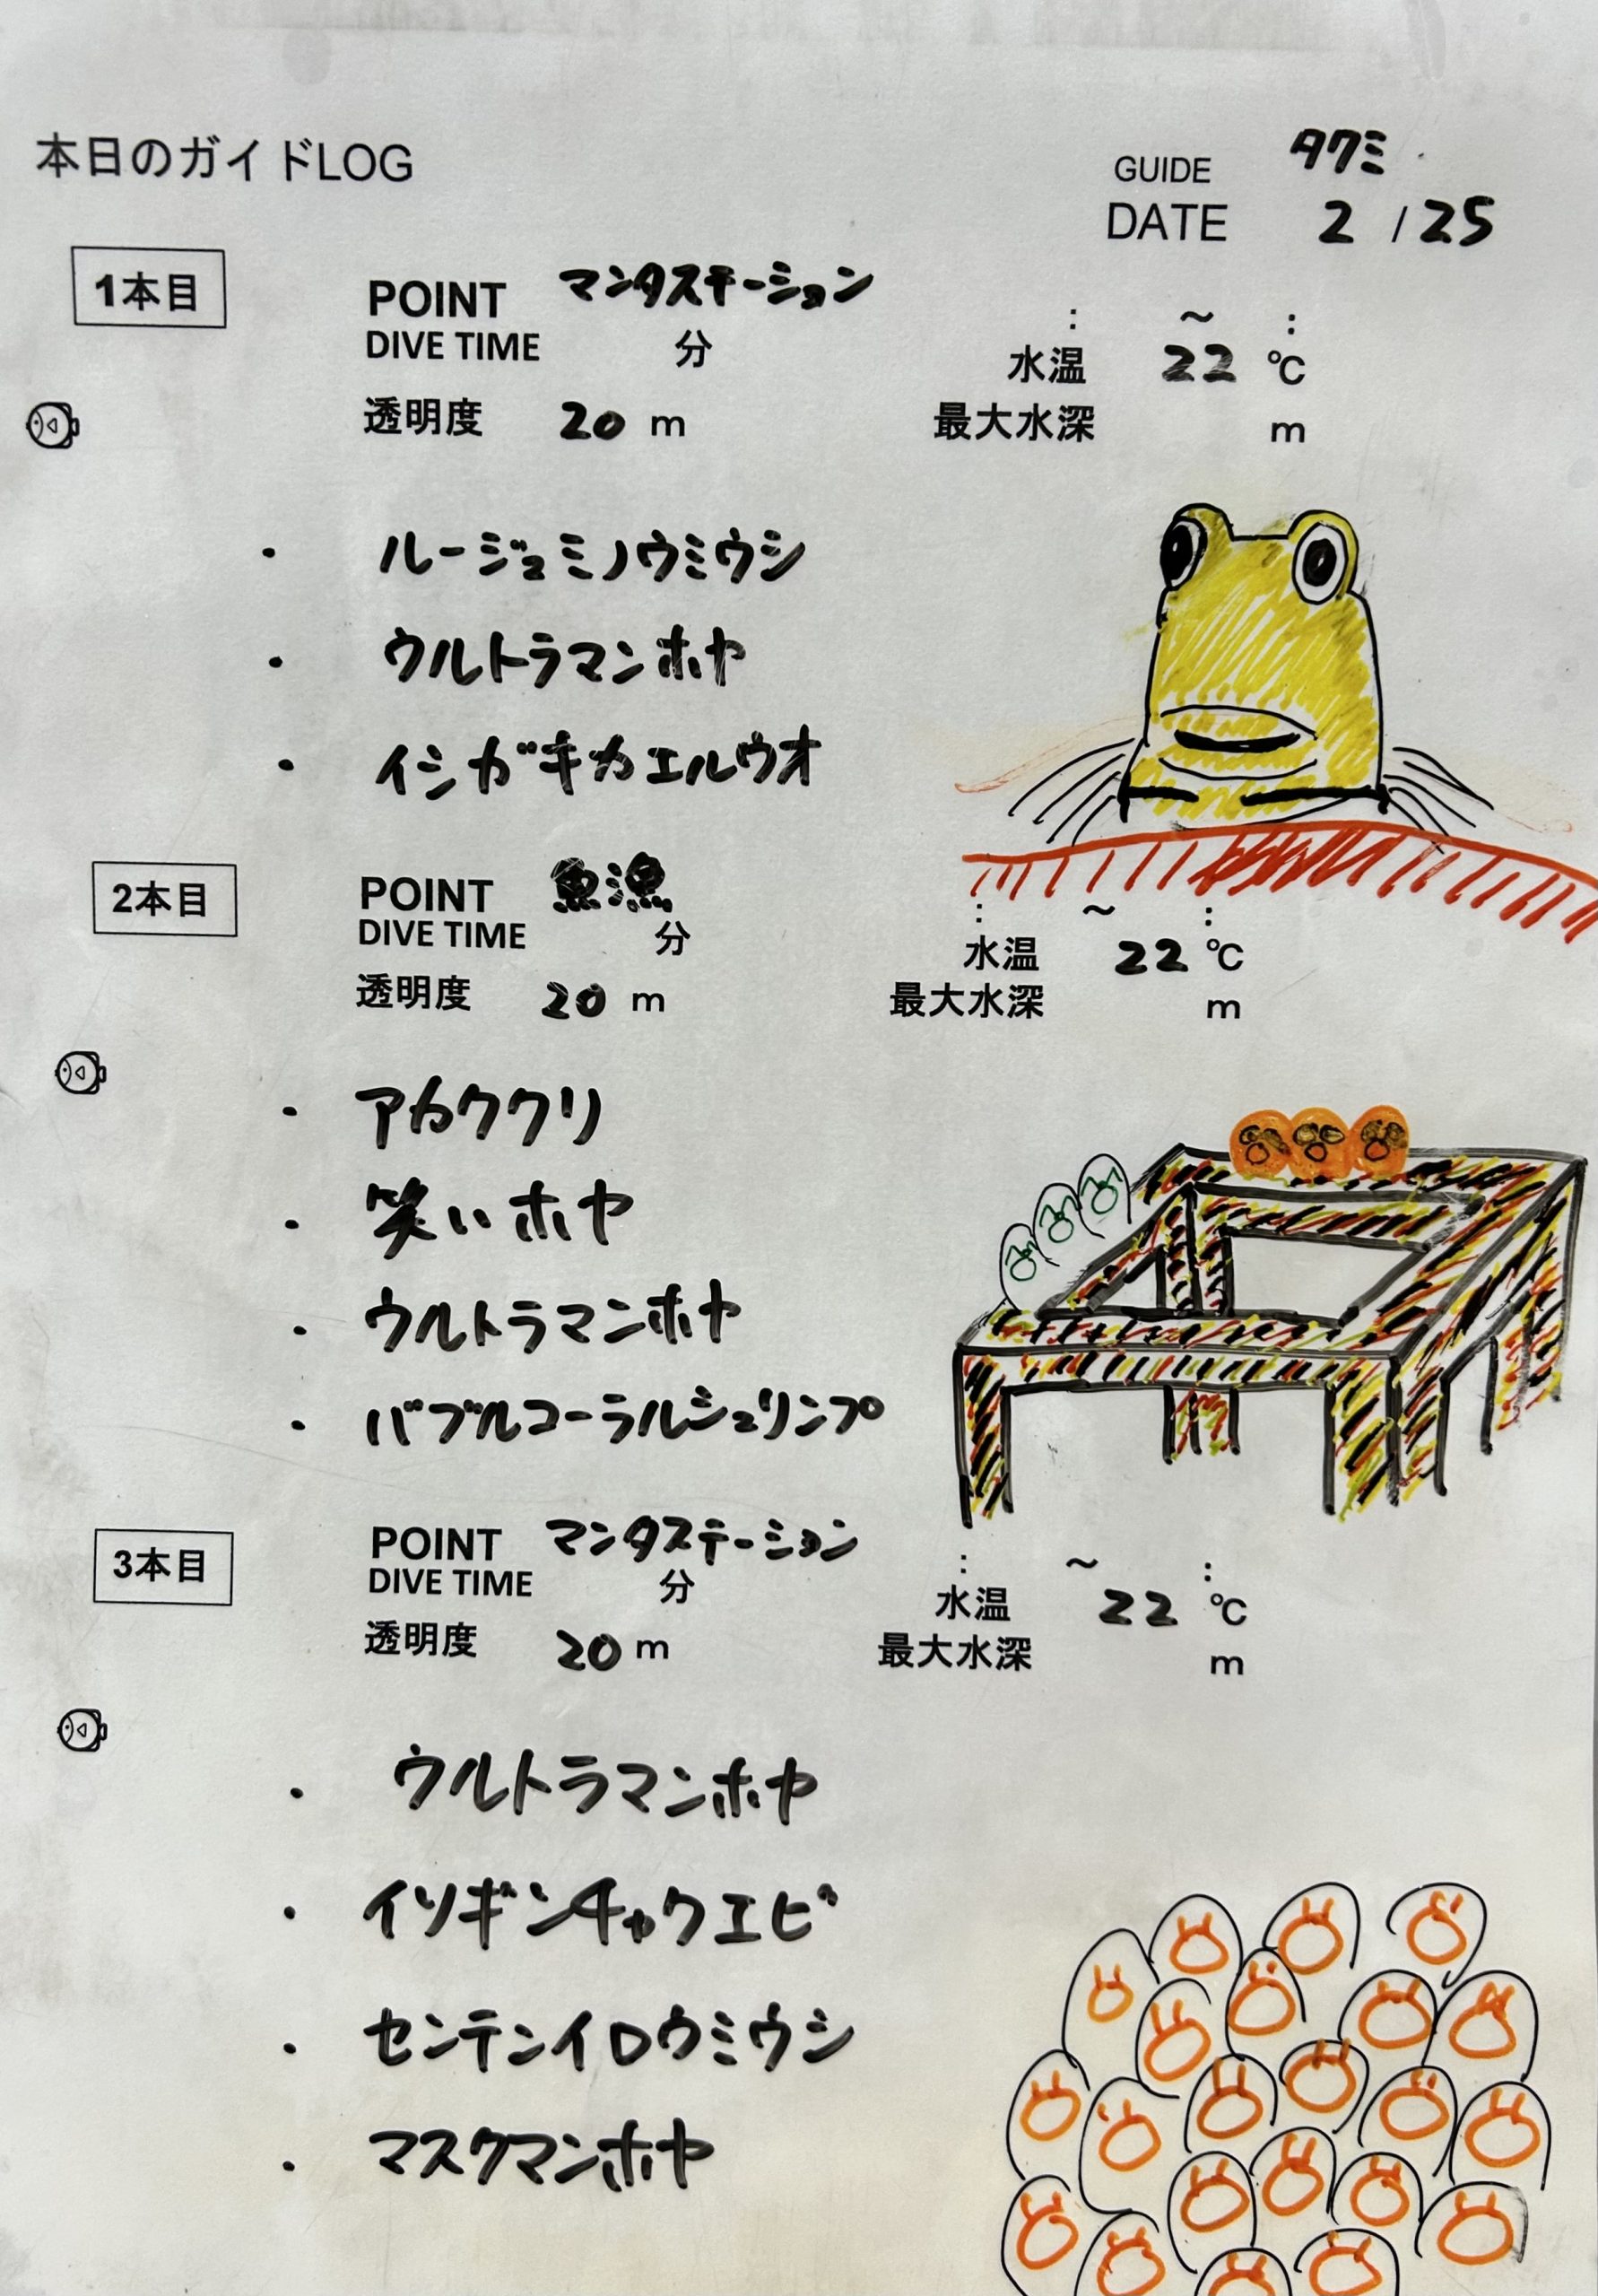 本日のガイドLOG
GUIDE タクミ
DATE 2 / 25
1本目
POINT マンタステーション
: ～ :
DIVE TIME 分
水温 22 ℃
透明度 20 m
最大水深 m
・ ルージュミノウミウシ
・ ウルトラマンホヤ
・ イシガキカエルウオ
2本目
POINT 魚漁
: ～ :
DIVE TIME 分
水温 22 ℃
透明度 20 m
最大水深 m
・ アカククリ
・ 笑いホヤ
・ ウルトラマンホヤ
・ バブルコーラルシュリンプ
3本目
POINT マンタステーション
: ～ :
DIVE TIME 分
水温 22 ℃
透明度 20 m
最大水深 m
・ ウルトラマンホヤ
・ イソギンチャクエビ
・ センテンイロウミウシ
・ マスクマンホヤ